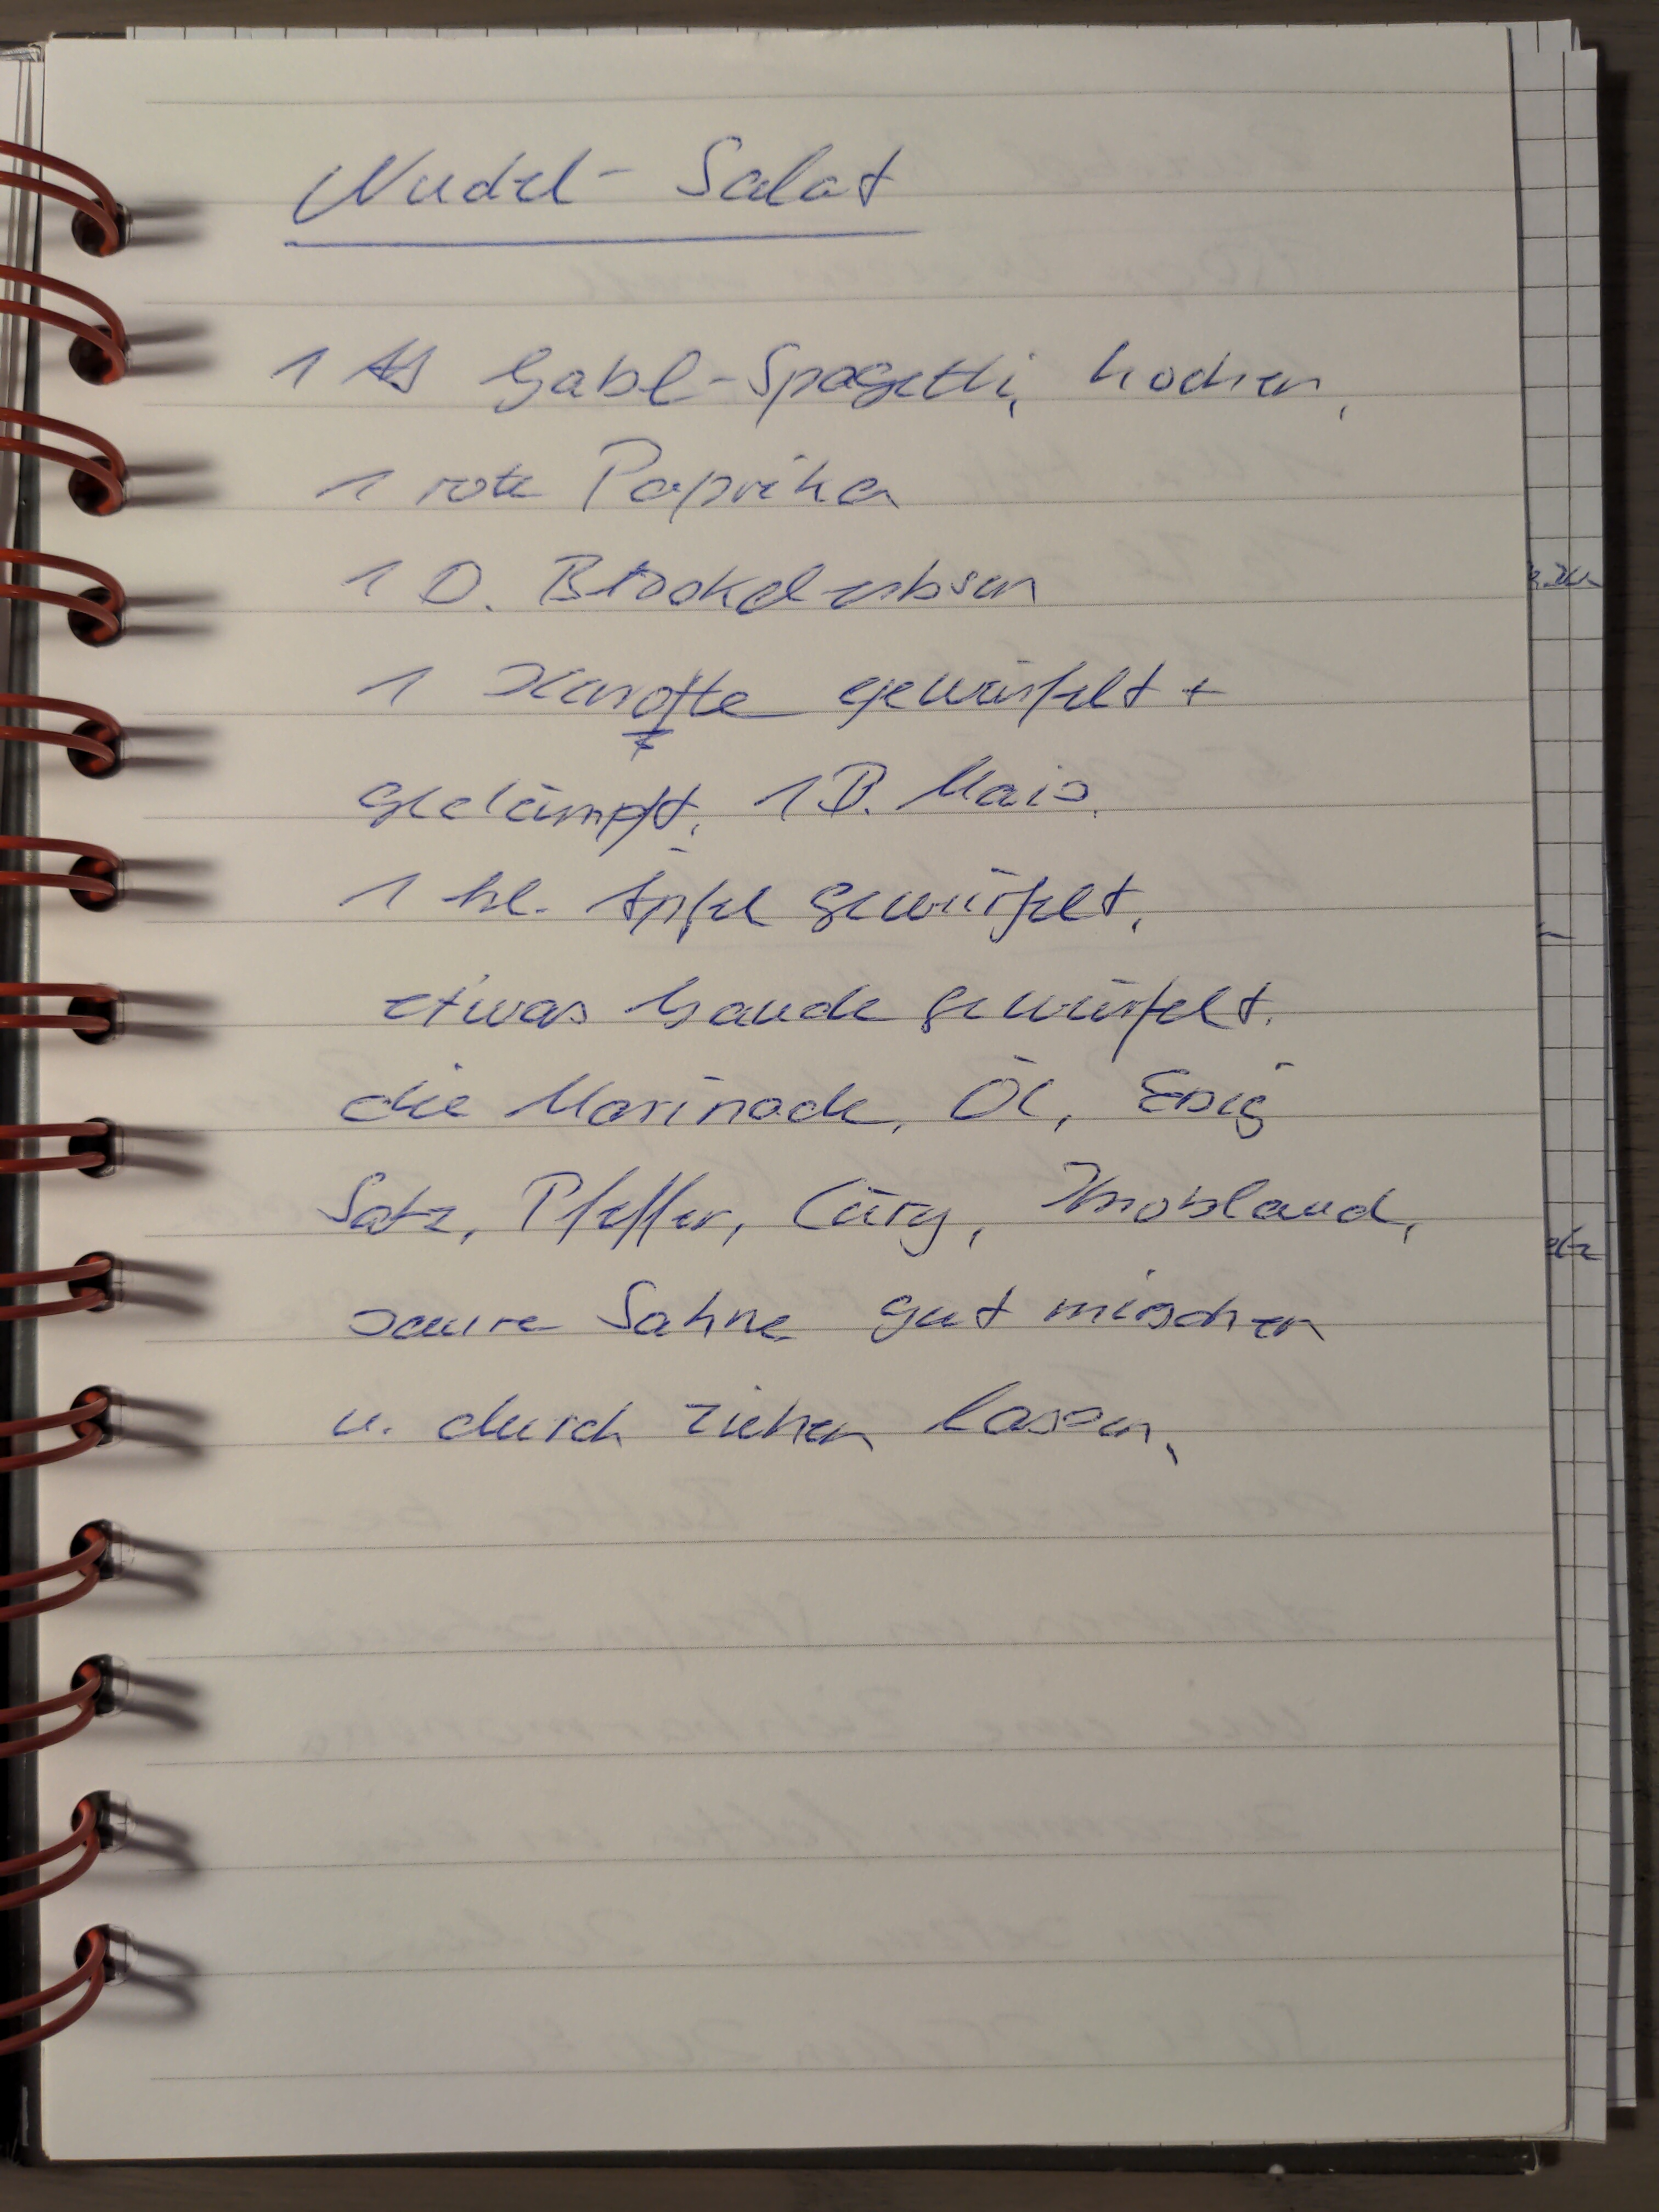 Nudel-Salat
1 Gabel-Spagetti, kochen,
1 rote Paprika
1 D. Brockelerbsen
1 Karotte gewürfelt +
gedämpft, 1 D. Mais.
1 kl. Apfel gewürfelt,
etwas Gauda gewürfelt.
die Marinade, Öl, Esig
Satz, Pfeffer, Cury, Knoblaud,
saure Sahne gut mischen
u. durch ziehen lassen,